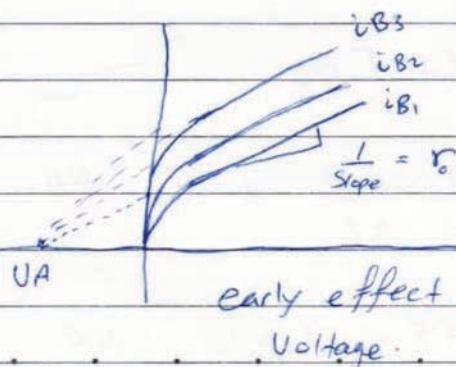 iB3
iB2
iB1
1/Slope = ro
UA
early effect
Voltage.